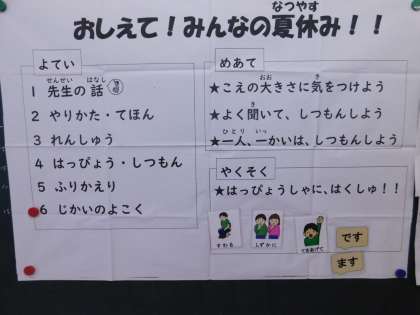 おしえて！みんなの夏休み！！
なつやす
よてい
せんせい はなし
1 先生の話
2 やりかた・てほん
3 れんしゅう
4 はっぴょう・しつもん
5 ふりかえり
6 じかいのよこく
めあて
おお き
★こえの大きさに気をつけよう
き
★よく聞いて、しつもんしよう
ひとり いっ
★一人、一かいは、しつもんしよう
やくそく
★はっぴょうしゃに、はくしゅ！！
すわる
しずかに
てをあげて
です
ます